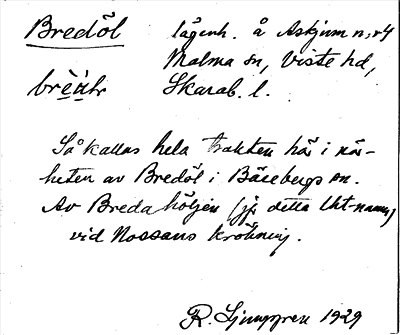 Bredöl lägenh. å Askjum n:r4
Malma sn, Viste hd,
brè̀ǜr Skarab. l.
Så kallas hela trakten här i när-
heten av Bredöl i Bäreberg sn.
Av Breda höljen (jfr detta Ukt-namn)
vid Nossans krökning.
R. Ljunggren 1929